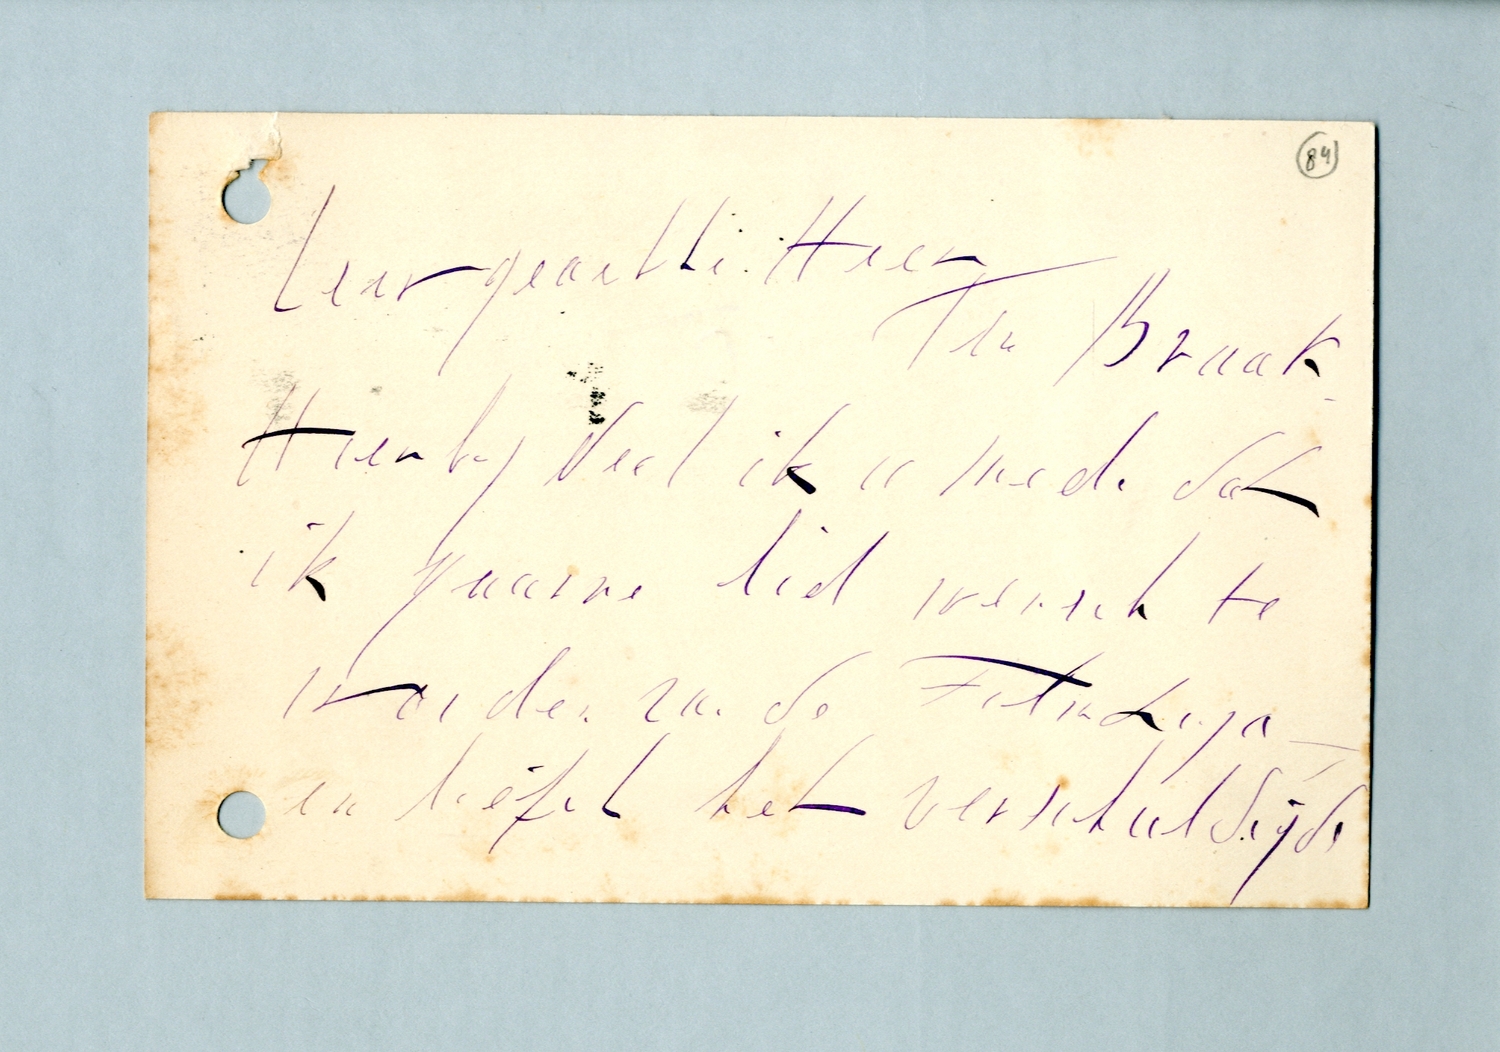 84
Zeer geachte Heer
Ter Braak
Hierbij deel ik u mede dat
ik gaarne lid wensch te
worden van de Filmliga
en liefst het verschuldigde